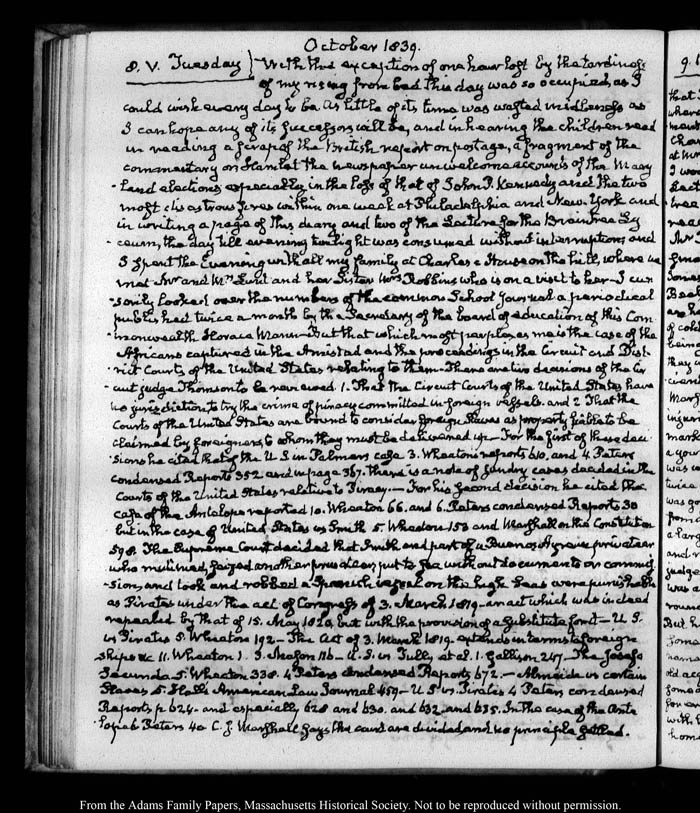 October 1839.
8. V. Tuesday } With the exception of one hour lost by the tardiness
of my rising from bed this day was so occupied as I
could wish every day to be. As little of its time was wasted in idleness as
I can hope any of its successors will be, and in hearing the children read
in reading a scrap of the British report on postage, a fragment of the
commentary on Hamlet the newspaper unwelcome accounts of the Mary-
-land elections, especially in the loss of that of John P. Kennedy and the two
most disastrous fires within one week at Philadelphia and New-York and
in writing a page of this diary and two of the Lecture for the Braintree Ly-
-ceum, the day till evening twilight was consumed without interruption, and
I spent the Evening with all my family at Charles's House on the hill, where we
met Mr and Mrs Lunt and her Sister Miss Robbins who is on a visit to her. I cur-
-sorily looked over the numbers of the common School Journal a periodical
published twice a month by the Secretary of the board of education of this Com-
-monwealth Horace Mann— But that which most perplexes me is the case of the
Africans captured in the Amistad and the proceedings in the Circuit and Dist-
-rict Courts of the United States relating to them— There are two decisions of the Cir-
-cuit judge Thomson to be reviewed. 1. That the Circuit Courts of the United States have
no jurisdiction to try the crime of piracy committed in foreign vessels. and 2 That the
Courts of the United States are bound to consider foreign slaves as property liable to be
claimed by foreigners, to whom they must be delivered up— For the first of these deci-
-sions he cited that of the U S in Palmers case 3. Wheaton's reports 610, and 4. Peters
condensed Reports 352 and in page 367. There is a note of sundry cases decided in the
Courts of the United States relative to Piracy.— For his second decision he cited the
case of the Antelope reported 10. Wheaton 66. and 6. Peters condensed Reports 30
but in the case of United States vs Smith 5. Wheaton 153 and Marshall on the Constitution
598. The Supreme Court decided that Smith and part of a Buenos Ayrean privateer
who mutinied, seized another privateer, put to sea without documents or commis-
-sion, and took and robbed a Spanish vessel on the high Seas were punishable
as Pirates under the act of Congress of 3. March 1819— an act which was indeed
repealed by that of 15. May 1820, but with the provision of a substitute for it— U. S.
vs Pirates 5. Wheaton 192— The Act of 3. March 1819. extends in terms to foreign
ships &c 11. Wheaton 1. 3. Mason 116— U. S. vs Tully et al. 1. Gallison 247.— The Josefa
Secunda 5. Wheaton 338. 4 Peters condensed Reports 672.— Almeida vs certain
Slaves 5. Halls American Law Journal 459— U S vs. Pirates 4 Peters condensed
Reports p 624— and especially 628 and 630. and 632 and 635. In the case of the Ante-
-lope 6 Peters 40 C. J. Marshall says the court are divided and no principle settled.
From the Adams Family Papers, Massachusetts Historical Society. Not to be reproduced without permission.